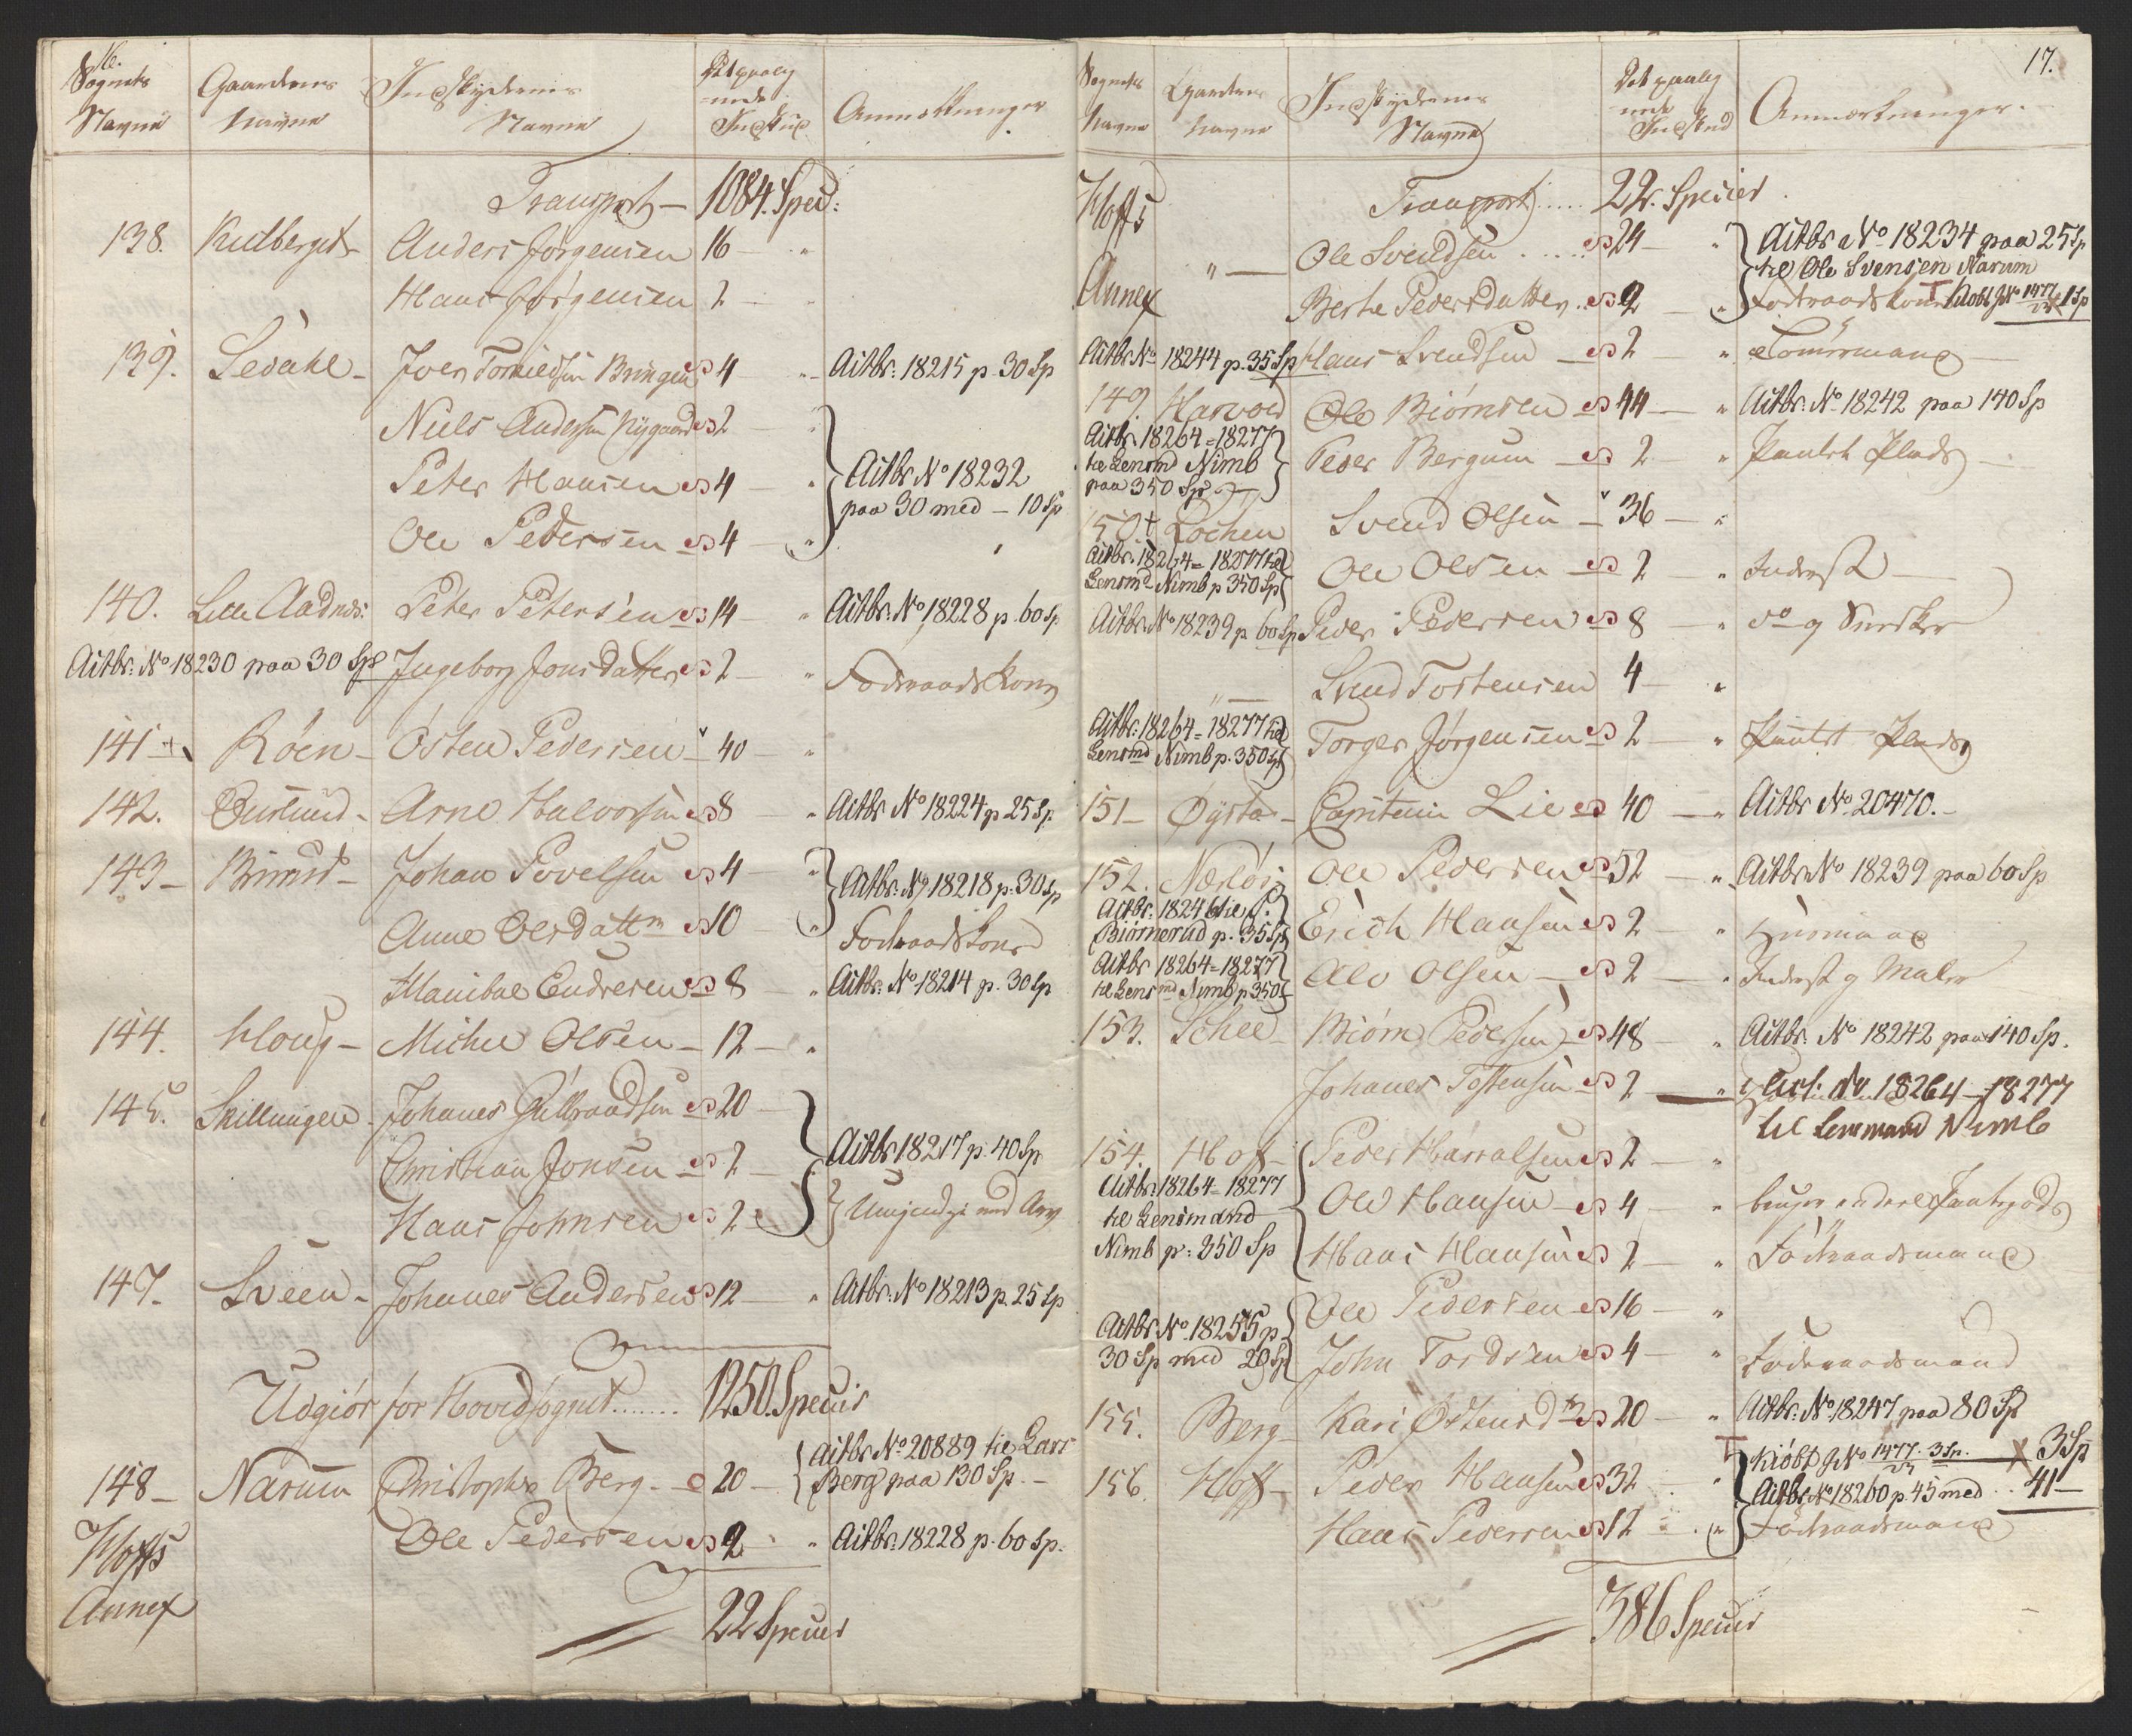 16.
Sognets Navne
Gaardenes Navne
Indskydernes Navne
Det paalignede Indskud
Anmærkninger
Transport – 1084. Speci:
138. Anders Jørgensen 16 – "
Hans Jørgensen 2 – "
139. Sedahl – Joen Bringen 4 " Actbr: 18215 p. 30 Sp
Niels Andersen Nygaard 2 – "
Peter Hansen 4 " Actbr No 18232
paa 30 med – 10 Sp
Ole Pedersen 4 – "
140. Lille Aadnes: Peter Petersen 14 – " Actbr: No 18228 p. 60 Sp
Actbr: No 18230 paa 30 Sp Ingeborg Jonsdatter 2 – " Födraadskone
141 + Röen – Östen Pedersen – 40 – "
142. Arne Halvorsen 8 " Actbr No 18224 p 25 Sp.
143 – Johan Povelsen 4 – " Actbr. No 18218 p. 30 Sp
Anne Olsdattr 10 – " Födraadskone
Endresen 8 – " Actbr: No 18214 p. 30 Sp
144. Houg – Michel Olsen – 12 – "
145. Skillingen – Johanes Gulbrandsen 20 –
Christian Jonsen – 2 – Actbr 18217 p. 40 Sp
Hans Johnsen 2
147. Sveen – Johanes Andersen 12 " Actbr: No 18213 p. 25 Sp
Udgiör for Hovedsognet ....... 1250. Specier
148 – Narum Christopher Berg – 20 – Actbr No 20889 til Lars
Berg paa 130 Sp. –
Hoffs
Annex
Ole Pedersen 2 " Actbr: 18228 p. 60 Sp.
22 Specier
17.
Sognets Navne
Gaardenes Navne
Indskydernes Navne
Det paalignede Indskud
Anmærkninger.
Hoffs
Annex
Transport ..... 22. Specier
" – Ole Svendsen ..... 24 – " Actbr No 18234 paa 25 Sp
til Ole Svensen Narum
Berthe Pedersdatter .. 2 – " Födraadskone Kiöbt No 1477 1 Sp
Actbr No 18244 p. 35 Sp Hans Svendsen – 2 " Tömmermand
149. Harvold Ole Biørnsen 44 – " Actbr: No 18242 paa 140 Sp
Actbr. 18264 = 18277
til Lensmd Nimb
paa 350 Sp
Peder Bergum – 2 " Plads
150. + Lochen Svend Olsen – 36 – "
Actbr. 18264 = 18277 til
Lensmd Nimb p 350 Sp
Ole Olsen – 2 " Inderst
Actbr. No 18239 p 60 Sp Peder Pedersen 8 – " do og Snedker
" – Svend Tostensen 4 – "
Actbr: 18264 = 18277 til
Lensmd Nimb p. 350 Sp
Torger Jørgensen 2 – " Plads
151 – Øysta – Capitain Lie 40 – " Actbr No 20470. –
152. Ole Pedersen 52 – " Actbr No 18239 paa 60 Sp
Actbr: 18246 til P.
Biørnerud p. 35 Sp
Erich Hansen 2 – " Husmand
Actbr 18264 = 18277
til Lensmd Nimb p 350
Olsen – 2 – " Inderst og Maler
153. Schee – Biørn Pedersen 48 – " Actbr: No 18242 paa 140 Sp.
Johanes Tostensen 2 – " Act: No 18264 – 18277
til Lensmand Nimb
154. Hof – Peder Harralsen 2 – "
Actbr: 18264 = 18277
til Lensmand
Nimb p: 350 Sp
Ole Hansen – 4 – "
Hans Hansen 2 – " Födraadsmand
Ole Pedersen 16 – "
Actbr No 18255 p
30 Sp med 20 Sp
John Tordsen 4 – " Födraadsmand
155. Berg – Kari Østensdtr 20 – " Actbr: No 18247 paa 80 Sp
156. Hoff – Peder Hansen 32 – " Kiöbt No 1477 3 Sp. – 3 Sp
Actbr: No 18260 p. 45 med .. 41 –
Hans Pedersen 12 – " Födraadsmand
386 Specier